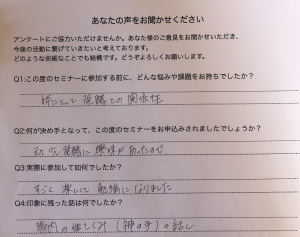 あなたの声をお聞かせください
アンケートにご協力いただけませんか。あなた様のご意見をお聞かせいただき、
今後の活動に繋げていきたいと考えております。
どのような些細なことでも結構です。どうぞよろしくお願いします。
Q1:この度のセミナーに参加する前に、どんな悩みや課題をお持ちでしたか?
体にとって 菜鶴との関係性
Q2:何が決め手となって、この度のセミナーをお申込みされましたでしょうか?
興味があったので
Q3:実際に参加して如何でしたか?
すごく 楽しくて 勉強になりました
Q4:印象に残った話は何でしたか?
腸内の仕くみ (神の手) の話し